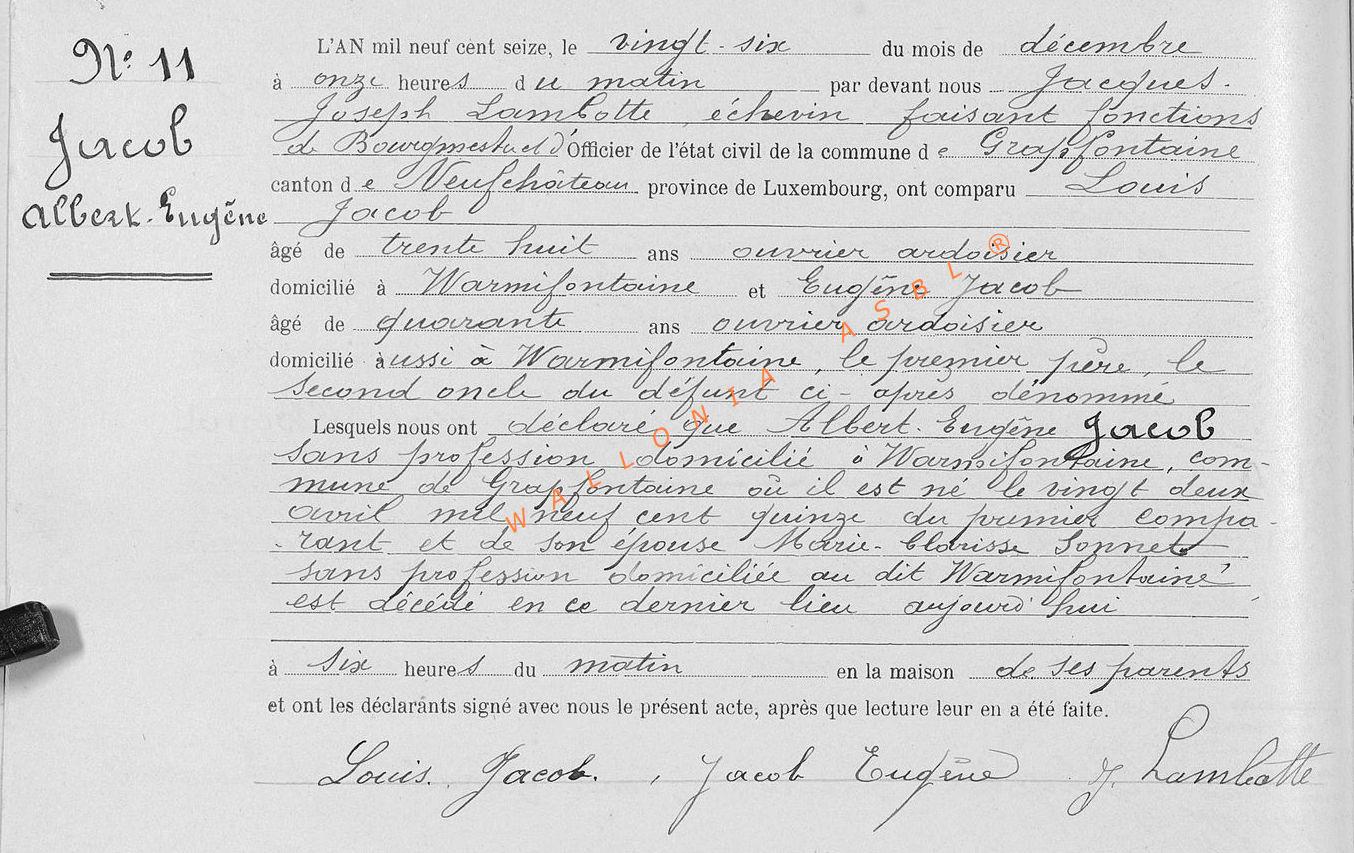 N° 11
Jacob
Albert-Eugène
L'AN mil neuf cent seize, le vingt-six du mois de décembre
à onze heures du matin par devant nous Jacques-
Joseph Lambotte, échevin faisant fonctions
de Bourgmestre et d'Officier de l'état civil de la commune de Grapfontaine
canton de Neufchâteau province de Luxembourg, ont comparu Louis
Jacob
âgé de trente huit ans ouvrier ardoisier
domicilié à Warmifontaine et Eugène Jacob
âgé de quarante ans ouvrier ardoisier
domicilié aussi à Warmifontaine, le premier père, le
second oncle du défunt ci-après dénommé
Lesquels nous ont déclaré que Albert-Eugène Jacob
sans profession domicilié à Warmifontaine, com-
mune de Grapfontaine où il est né le vingt deux
avril mil neuf cent quinze du premier compa-
-rant et de son épouse Marie-Clarisse Sonnet
sans profession domiciliée au dit Warmifontaine
est décédé en ce dernier lieu aujourd'hui
à six heures du matin en la maison de ses parents
et ont les déclarants signé avec nous le présent acte, après que lecture leur en a été faite.
Louis Jacob. Jacob Eugène J. Lambotte
WALLONIA ASBL ®